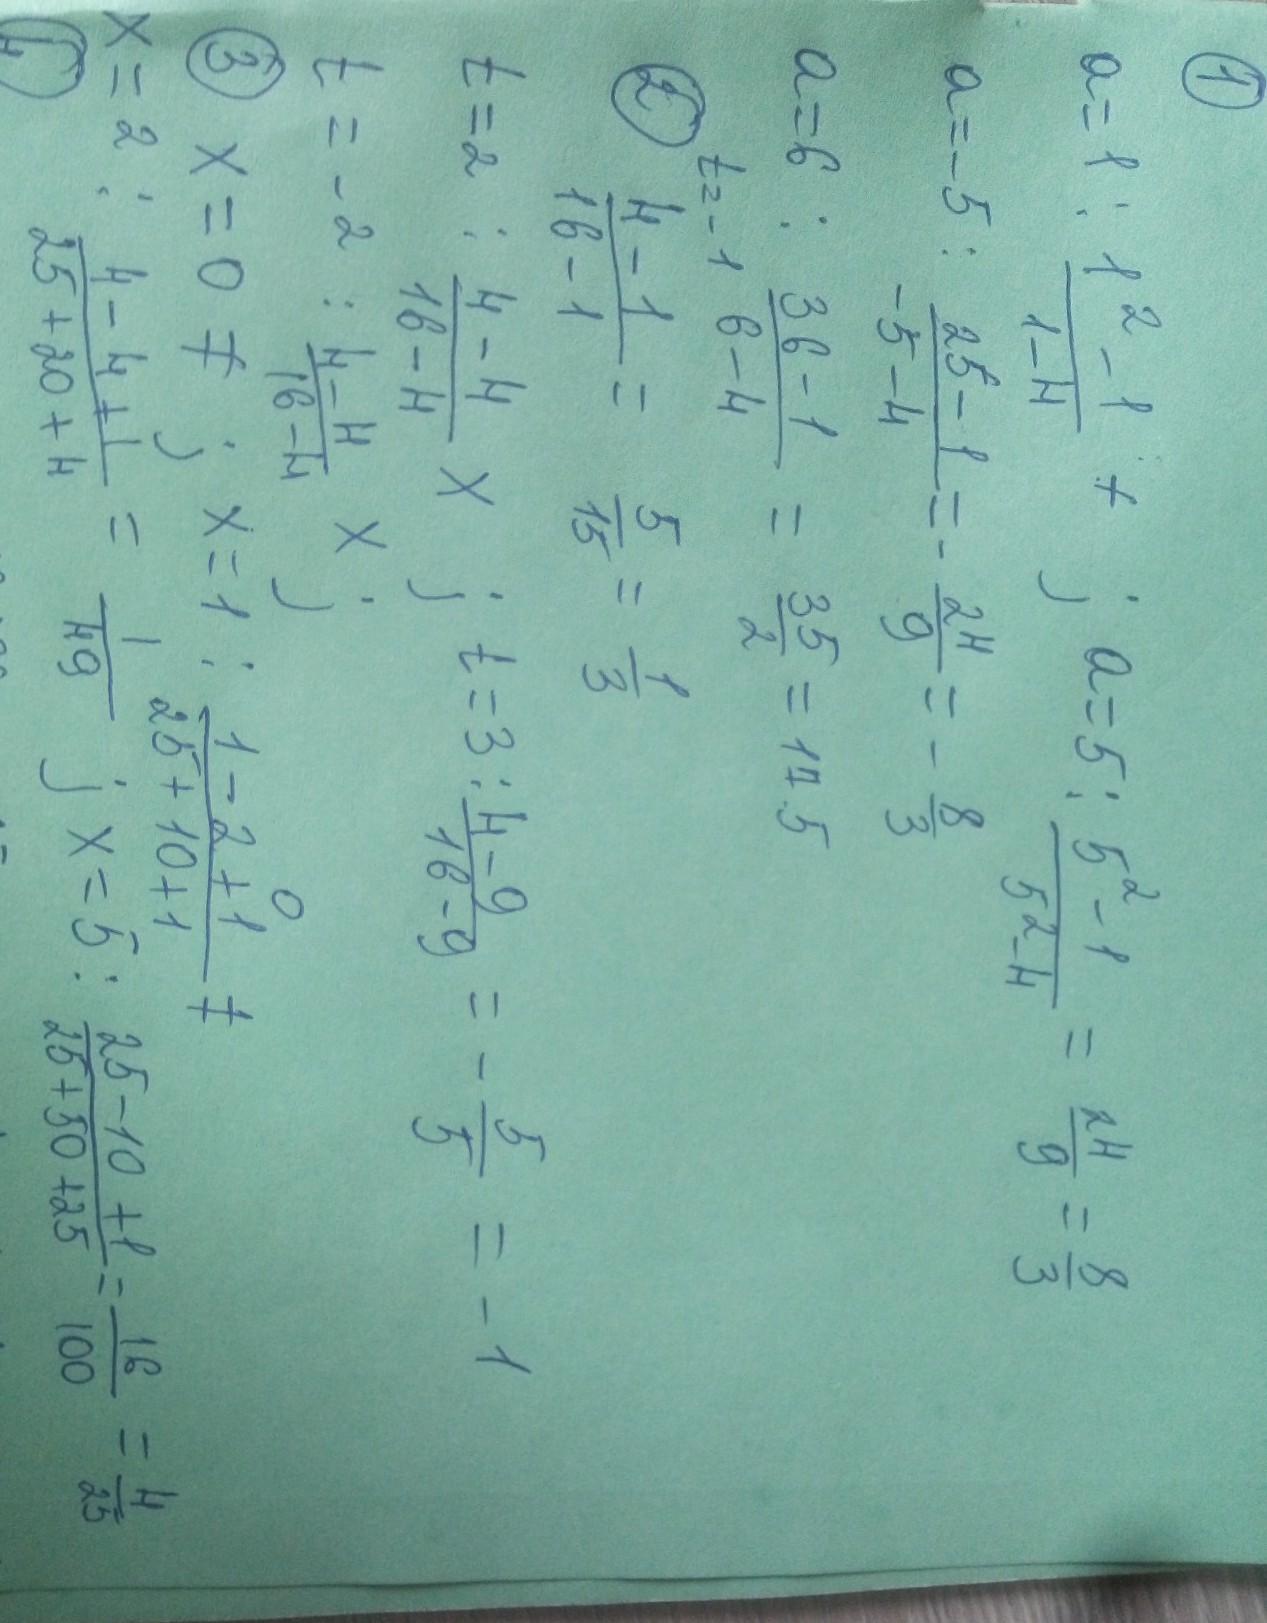 ①
a=1: 1²-1/1-4 ≠ ; a=5: 5²-1/5²-4 = 24/9 = 8/3
a=-5: 25-1/-5-4 = -24/9 = -8/3
a=6: 36-1/6-4 = 35/2 = 17.5
② t=-1 4-1/16-1 = 5/15 = 1/3
t=2: 4-4/16-4 x ; t=3: 4-9/16-9 = -5/5 = -1
t=-2: 4-4/16-4 x ;
③ x=0 ≠ ; x=1: 1-2+1/25+10+1 0 ≠
x=2: 4-4+1/25+20+4 = 1/49 ; x=5: 25-10+1/25+50+25 = 16/100 = 4/25